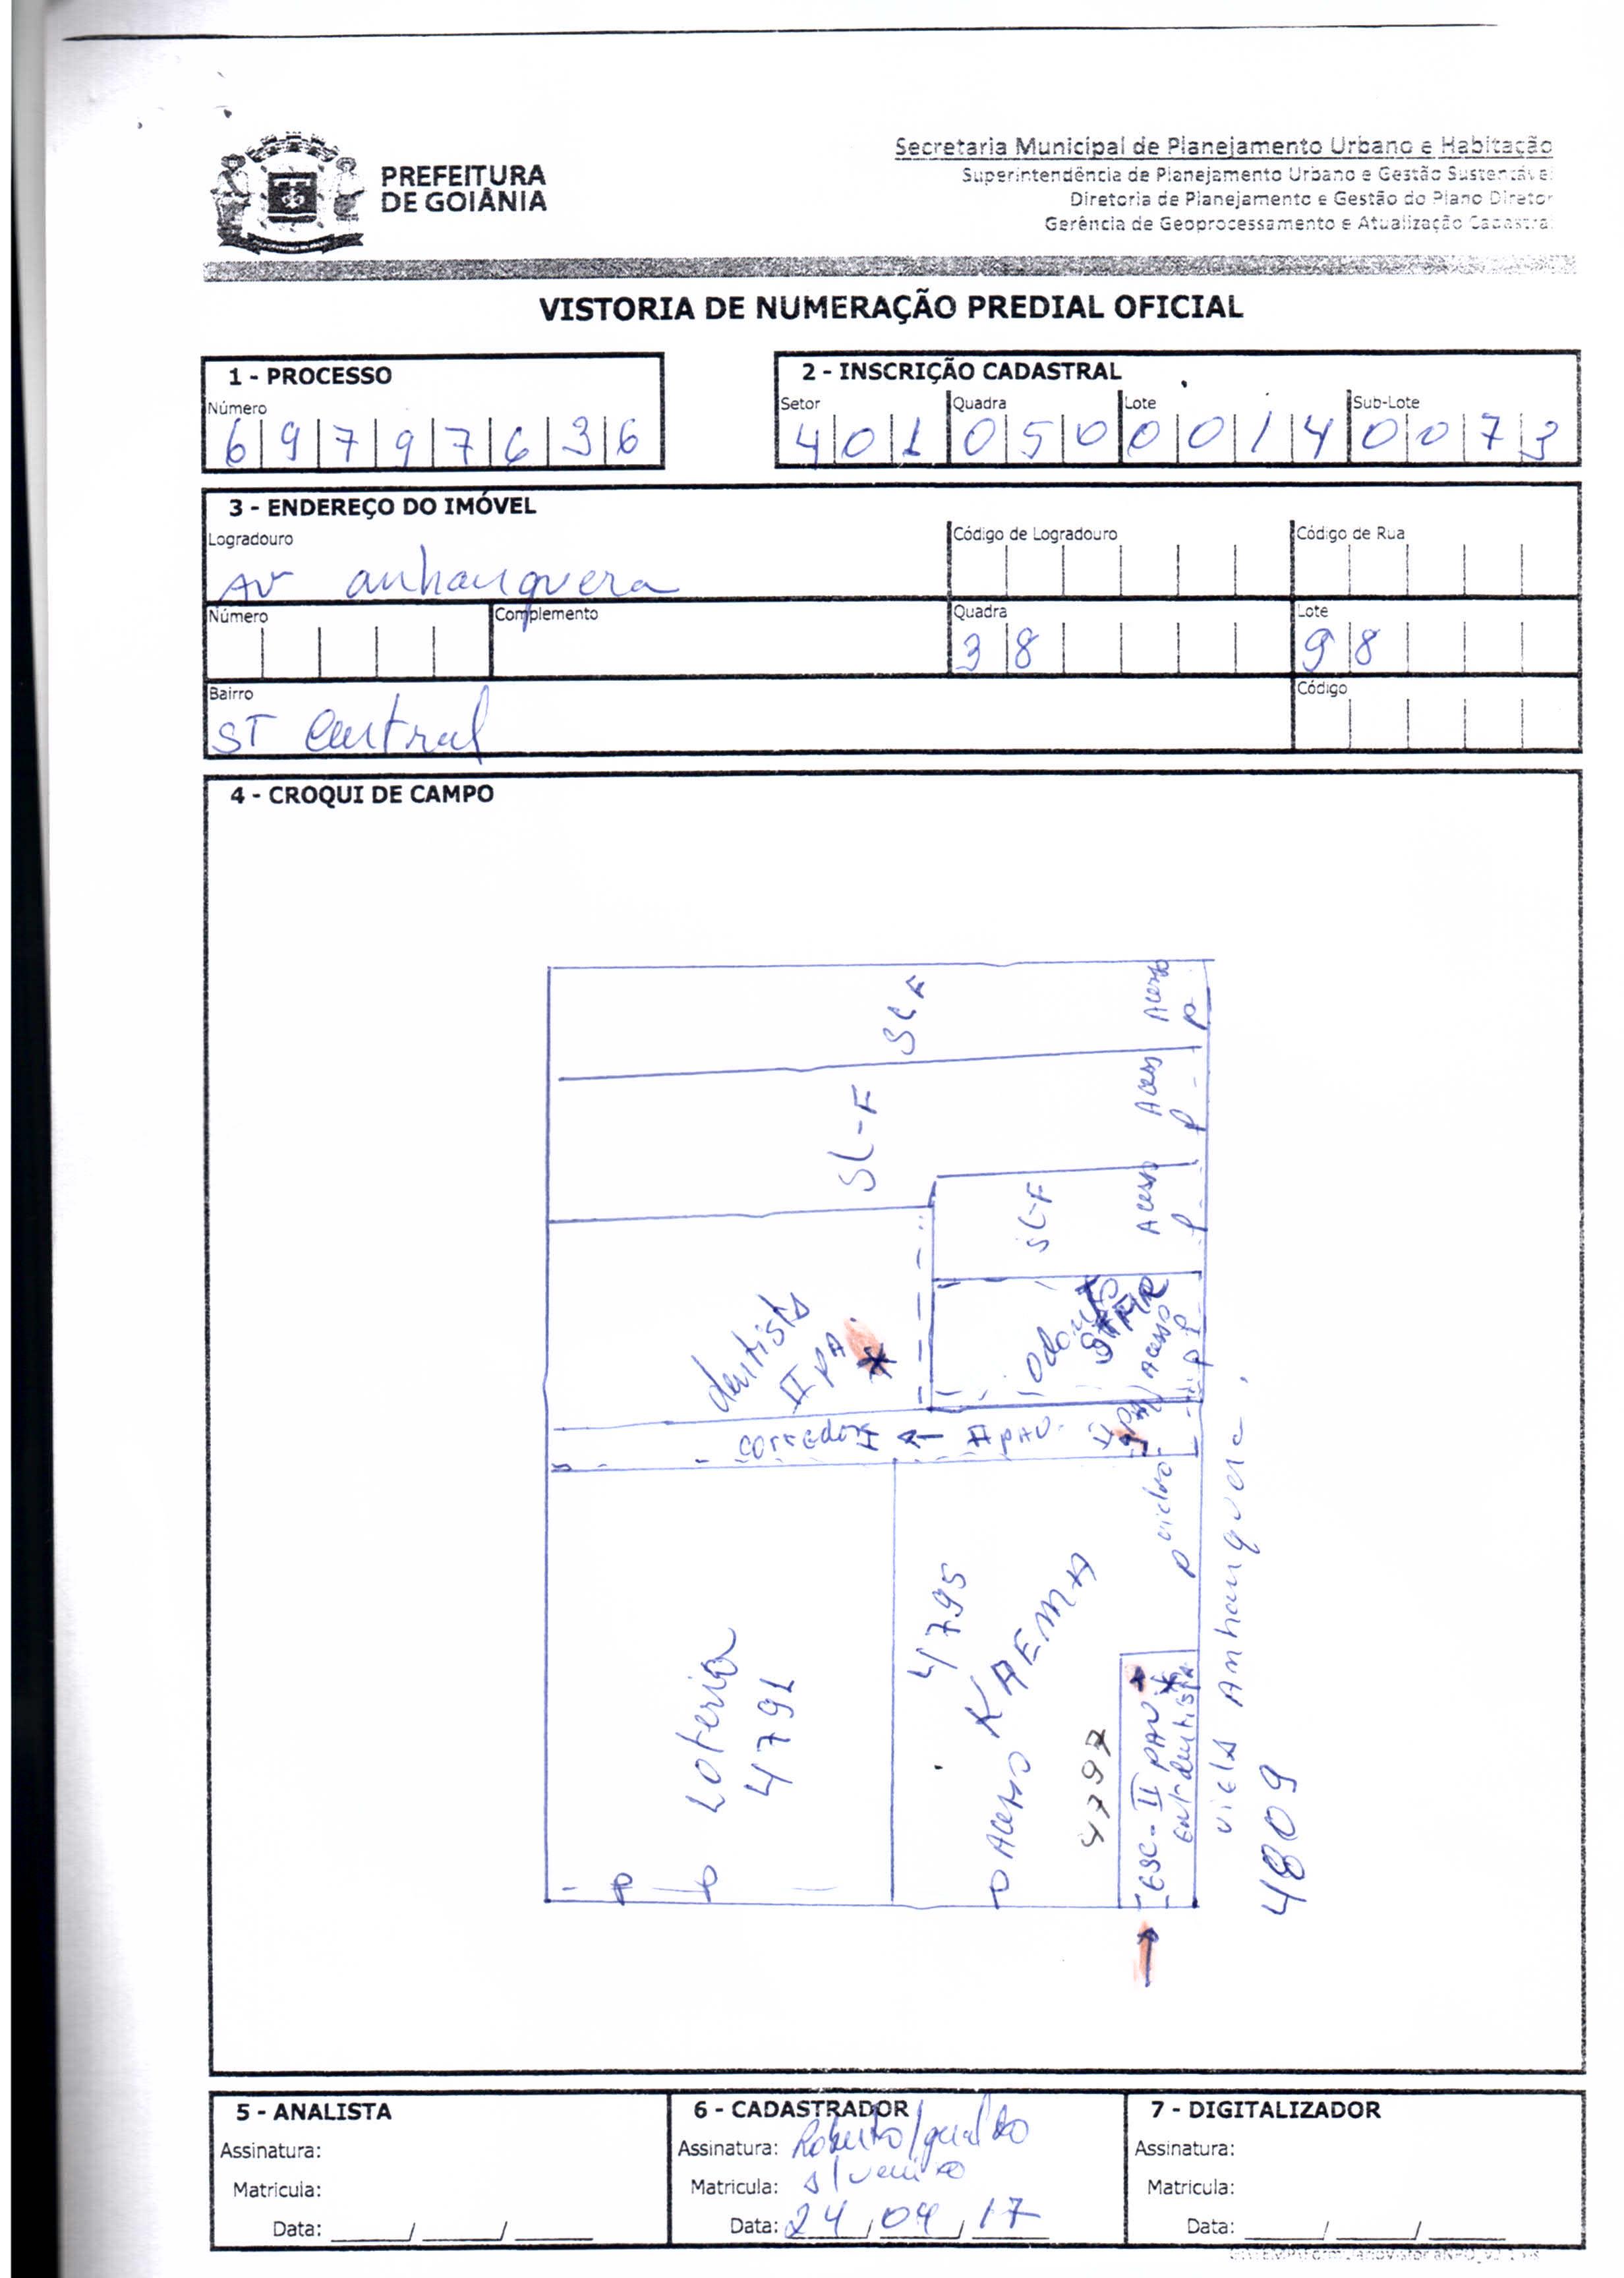 PREFEITURA
DE GOIÂNIA
Secretaria Municipal de Planejamento Urbano e Habitação
Superintendência de Planejamento Urbano e Gestão Sustentável
Diretoria de Planejamento e Gestão do Plano Diretor
Gerência de Geoprocessamento e Atualização Cadastral
VISTORIA DE NUMERAÇÃO PREDIAL OFICIAL
1 - PROCESSO
Número
69797636
2 - INSCRIÇÃO CADASTRAL
Setor Quadra Lote Sub-Lote
401 050 0014 0073
3 - ENDEREÇO DO IMÓVEL
Logradouro Código de Logradouro Código de Rua
AV anhanguera
Número Complemento Quadra Lote
38 98
Bairro Código
ST Central
4 - CROQUI DE CAMPO
SL F
Acesso
P
SL-F
Acess
P
SL-F
Acesso
P
dentista
II PA
Odonto
STAR
Acesso
P P
corredor
II PAV
II PAV
P vidro
Loteria
4791
4795
KAEMA
Acesso
4797
ESC - II PAV
Ent dentista
viela Anhanguera
4809
5 - ANALISTA
Assinatura:
Matricula:
Data: ____/____/____
6 - CADASTRADOR
Assinatura: Roberto/
Matricula:
Data: 24/04/17
7 - DIGITALIZADOR
Assinatura:
Matricula:
Data: ____/____/____